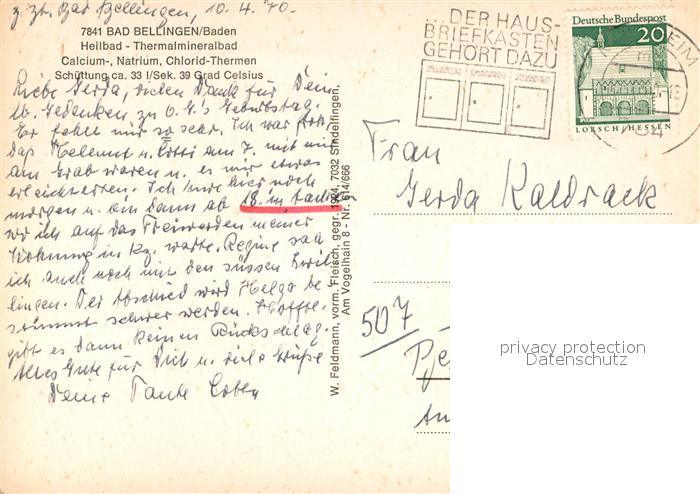 z. Zt. Bad Bellingen, 10.4.70.
7841 BAD BELLINGEN/Baden
Heilbad - Thermalmineralbad
Calcium-, Natrium, Chlorid-Thermen
Schüttung ca. 33 l/Sek. 39 Grad Celsius
Liebe Gerda, vielen Dank für Dein
lb. Gedenken, zu O. G.'s Geburtstag.
Er fehlt mir so sehr. Ich war froh
daß Helmut u. Lotti am 7. mit mir
am Grab waren u. es mir etwas
erleichterten. Ich hier noch
morgen u. bin dann ab 18. in
wo ich auf das Freiwerden meiner
Wohnung in Kg. warte. Regine sah
ich auch noch mit den süssen Zwil
lingen. Der Abschied wird Helga be
stimmt schwer werden. Hoffte.
gibt es dann keinen Rückschlag.
Alles Gute für Dich u. viele Grüße
Deine Tante
W. Feldmann, vorm. Fleisch, gegr. 1924, 7032 Sindelfingen,
Am Vogelhain 8 - Nr. 614/666
...DER HAUS-
BRIEFKASTEN
GEHÖRT DAZU
Deutsche Bundespost
20
LORSCH/HESSEN
Frau
Gerda Kaldrack
507
privacy protection
Datenschutz